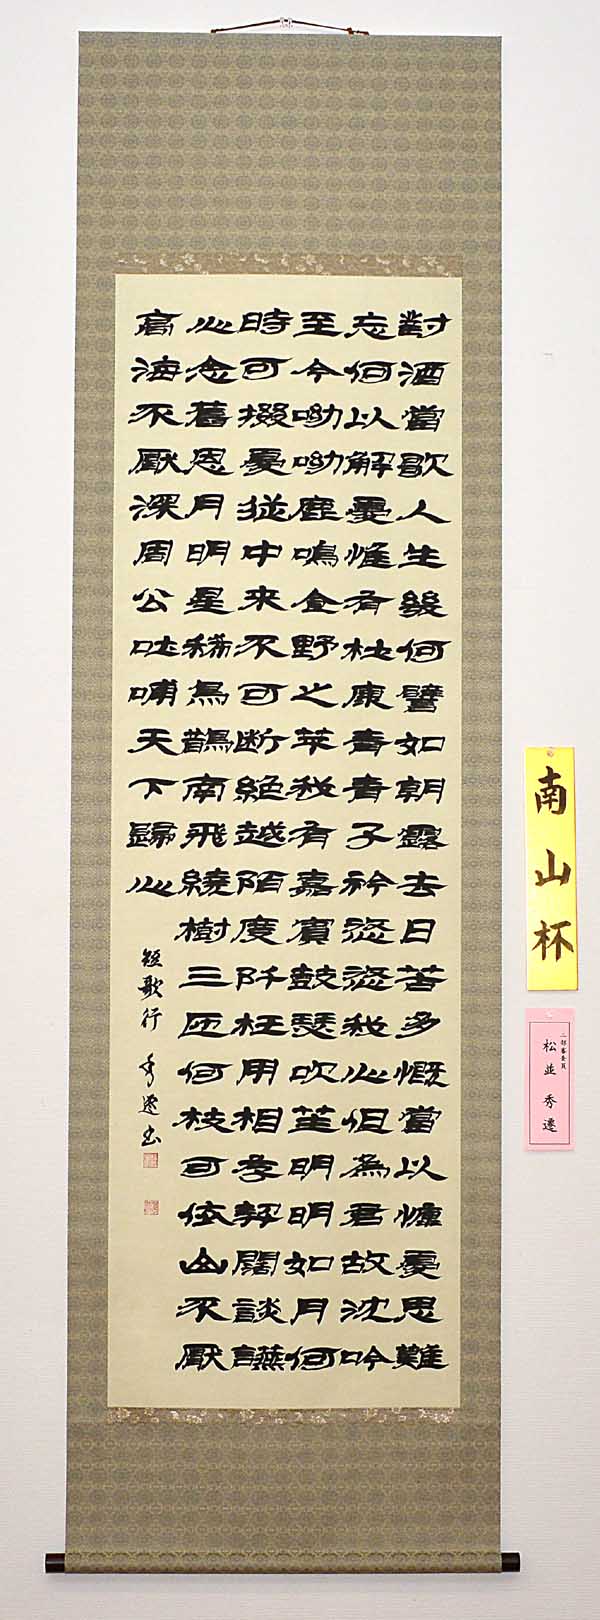 對酒當歌人生幾何譬如朝露去日苦多慨當以慷憂思難
忘何以解憂惟有杜康青青子衿悠悠我心但為君故沈吟
至今呦呦鹿鳴食野之苹我有嘉賓鼓瑟吹笙明明如月何
時可掇憂從中來不可断絶越陌度阡枉用相存契闊談讌
心念舊恩月明星稀烏鵲南飛繞樹三匝何枝可依山不厭
高海不厭深周公吐哺天下歸心
短歌行 秀遷書
南山杯
三部審査員
松並秀遷